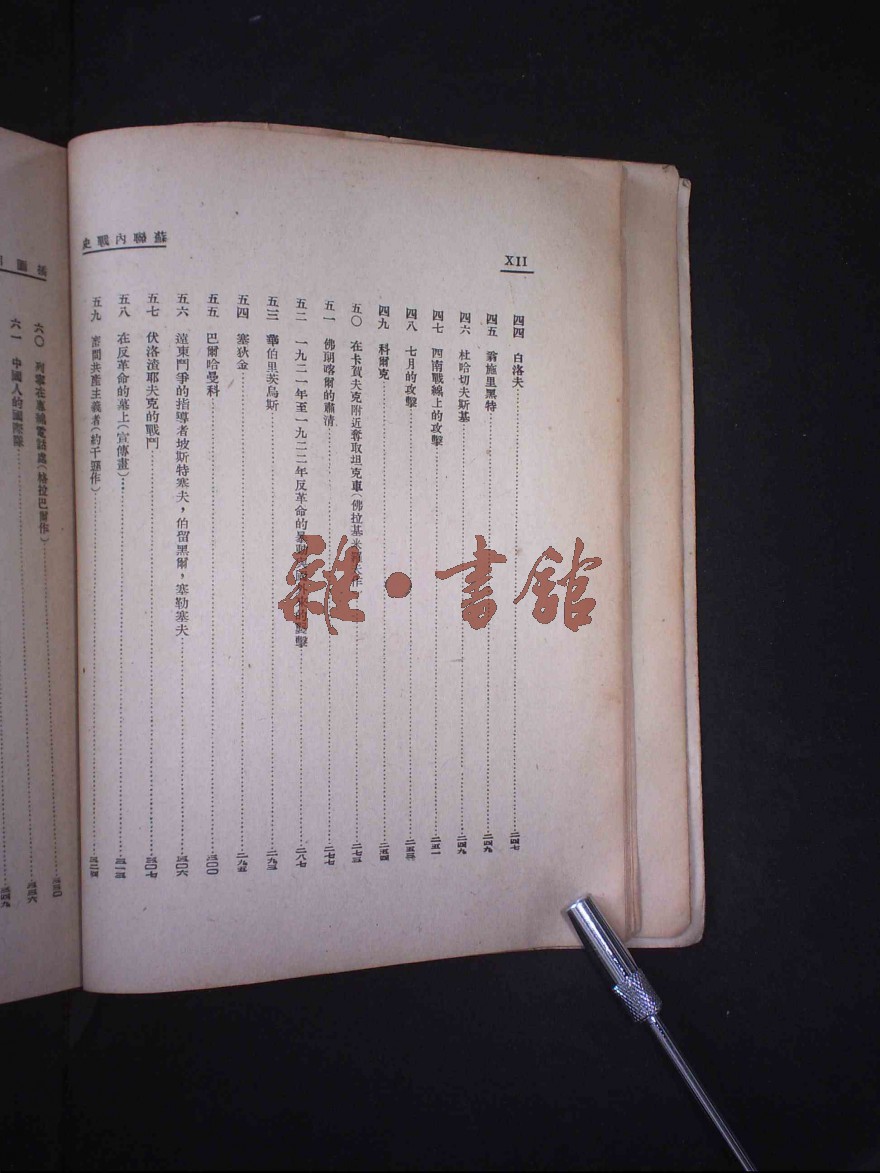 蘇聯內戰史
XII
四四 白洛夫 二四七
四五 翁施里黑特 二四九
四六 杜哈切夫斯基 二四九
四七 西南戰線上的攻擊 二五一
四八 七月的攻擊 二五三
四九 科爾克 二五四
五〇 在卡賀夫克附近奪取坦克車(佛拉基 二七三
五一 佛朗喀爾的肅清 二七七
五二 一九二一年至一九二二年反革命的暴動 外來的襲擊 二八七
五三 華伯里茨烏斯 二九三
五四 塞狄金 二九五
五五 巴爾哈曼科 三〇〇
五六 遠東鬥爭的指導者坡斯特塞夫,伯留黑爾,塞勒塞夫 三〇六
五七 伏洛渣耶夫克的戰鬥 三〇七
五八 在反革命的墓上(宣傳畫) 三一三
五九 密間共產主義者(約干遜作)
插圖
六〇 列寧在專線電話處(格拉巴爾作) 三三〇
六一 中國人的國際隊 三三六
三四九
雜·書館